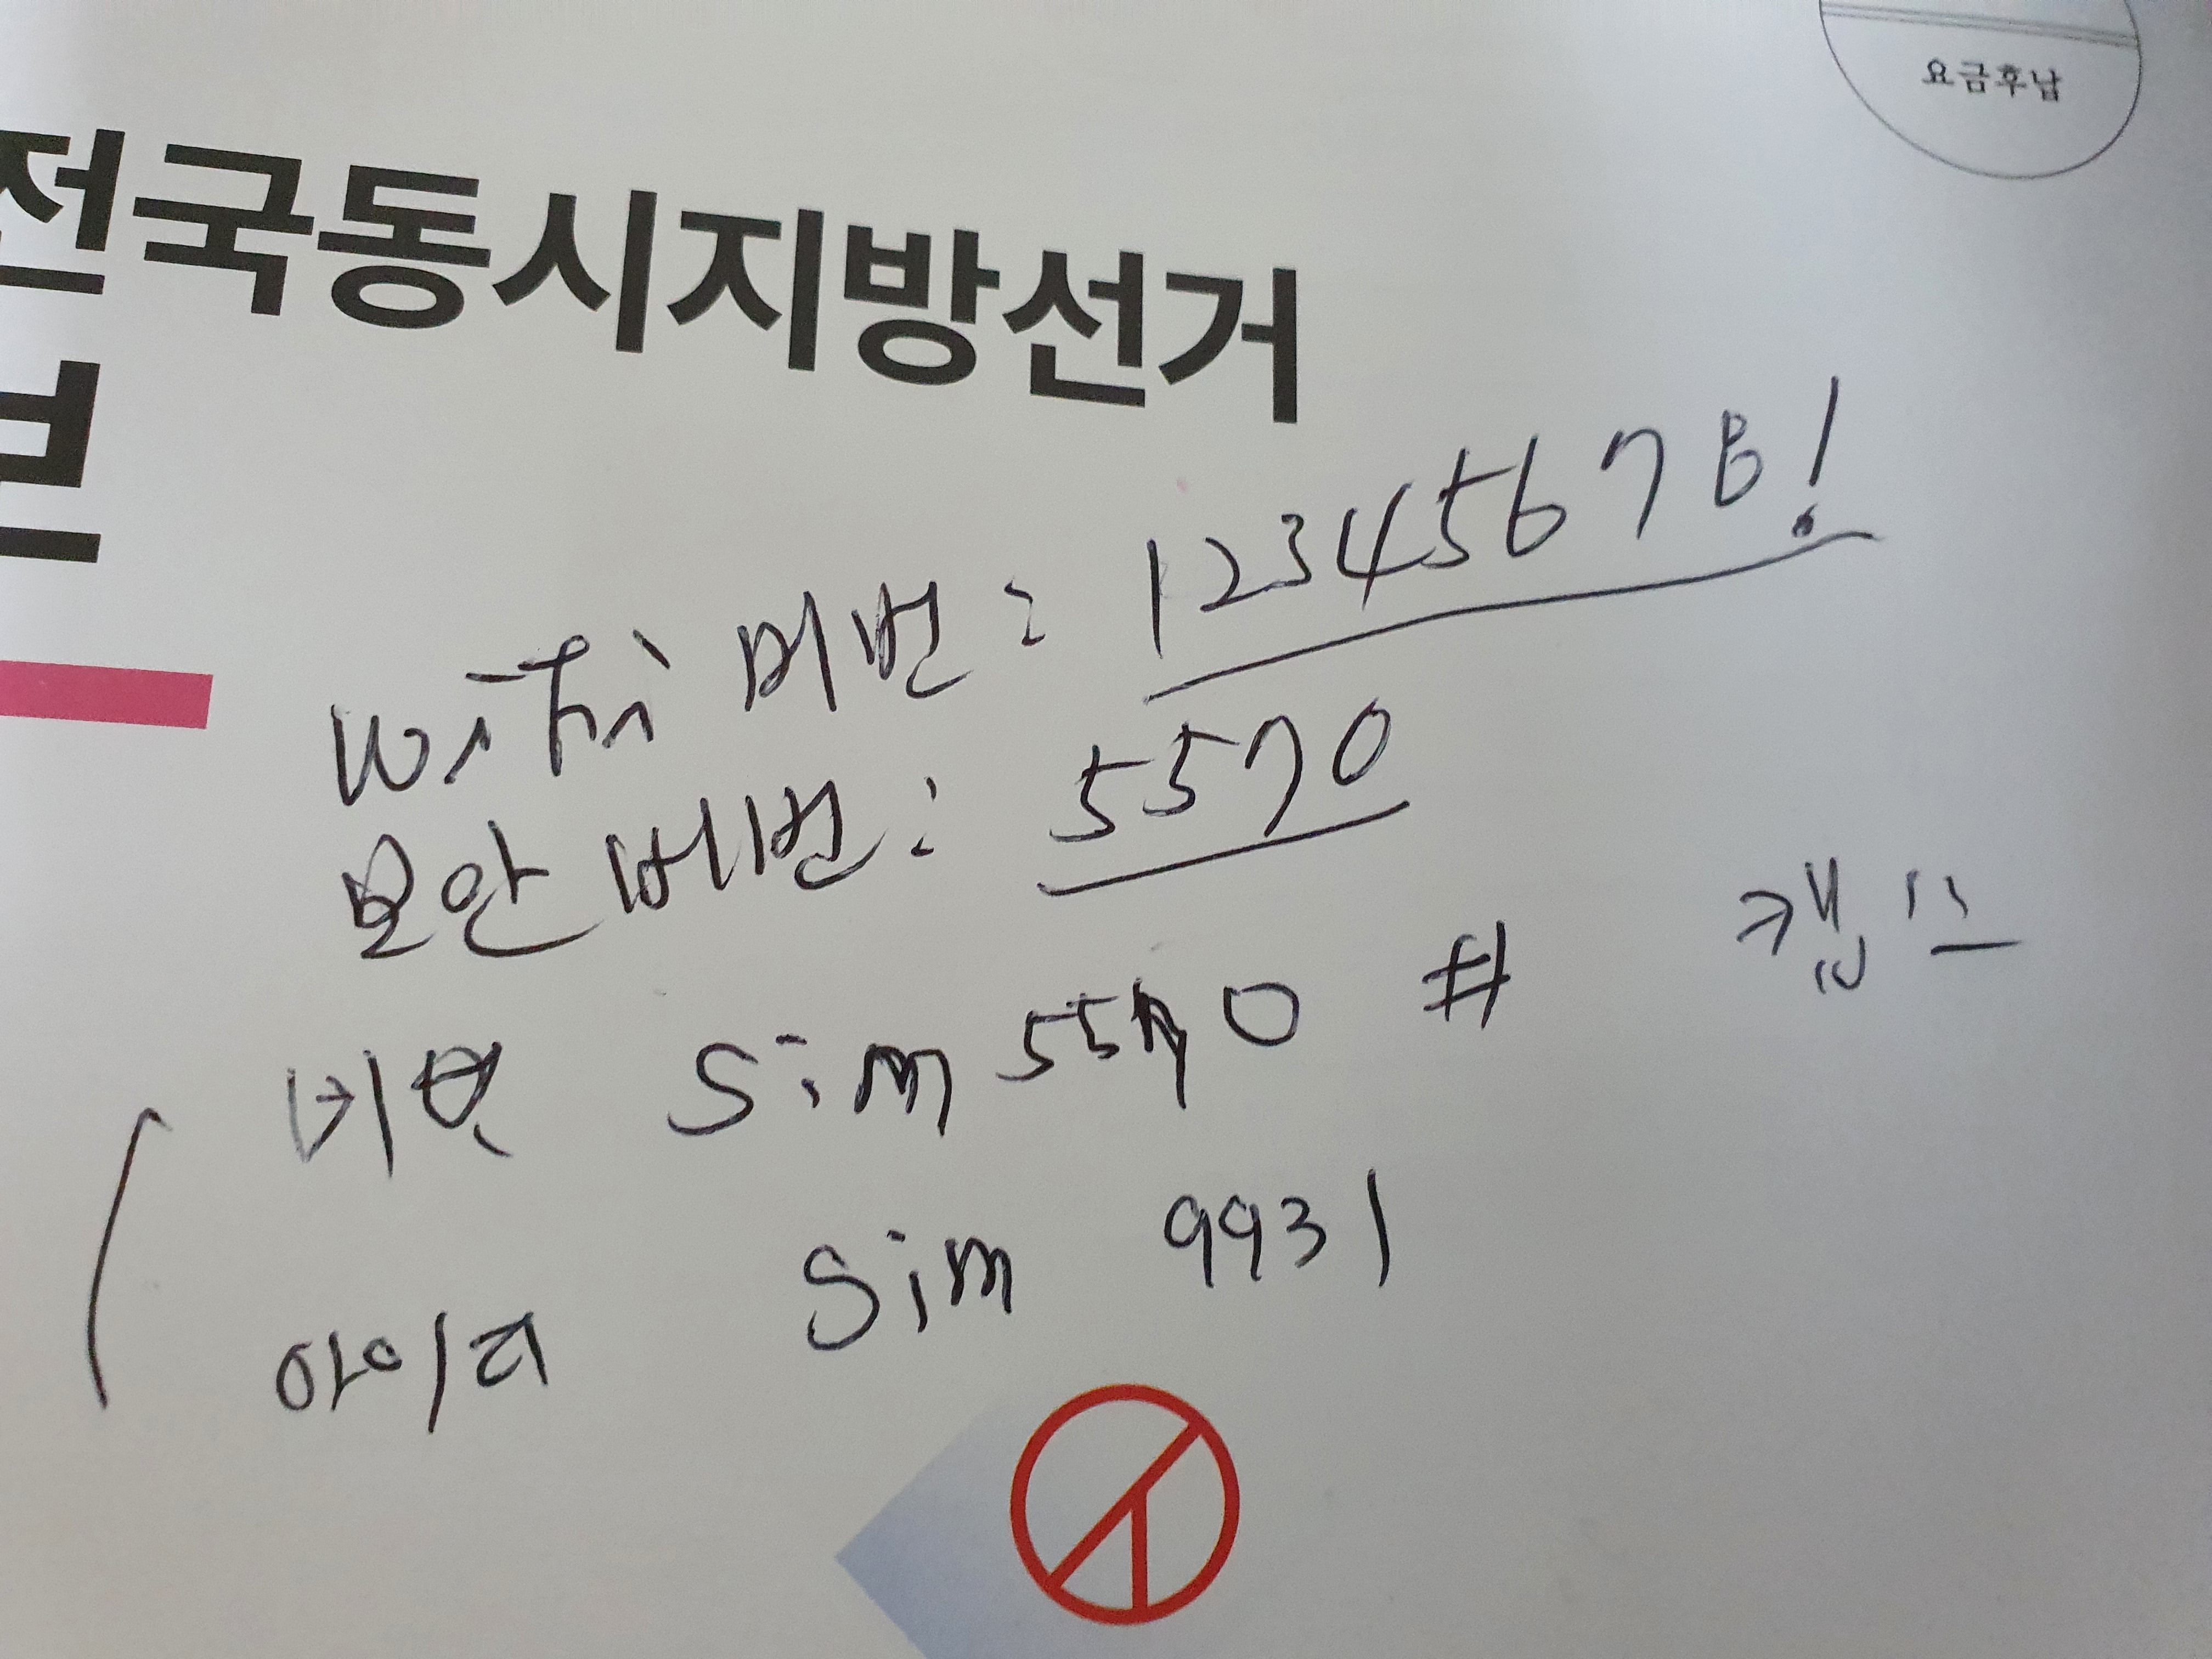 요금후납
전국동시지방선거
보
wifi 비번 : 12345678!
보안 비번 : 5570
비번 Sim5570 # 캡스
아이디 Sim 9931